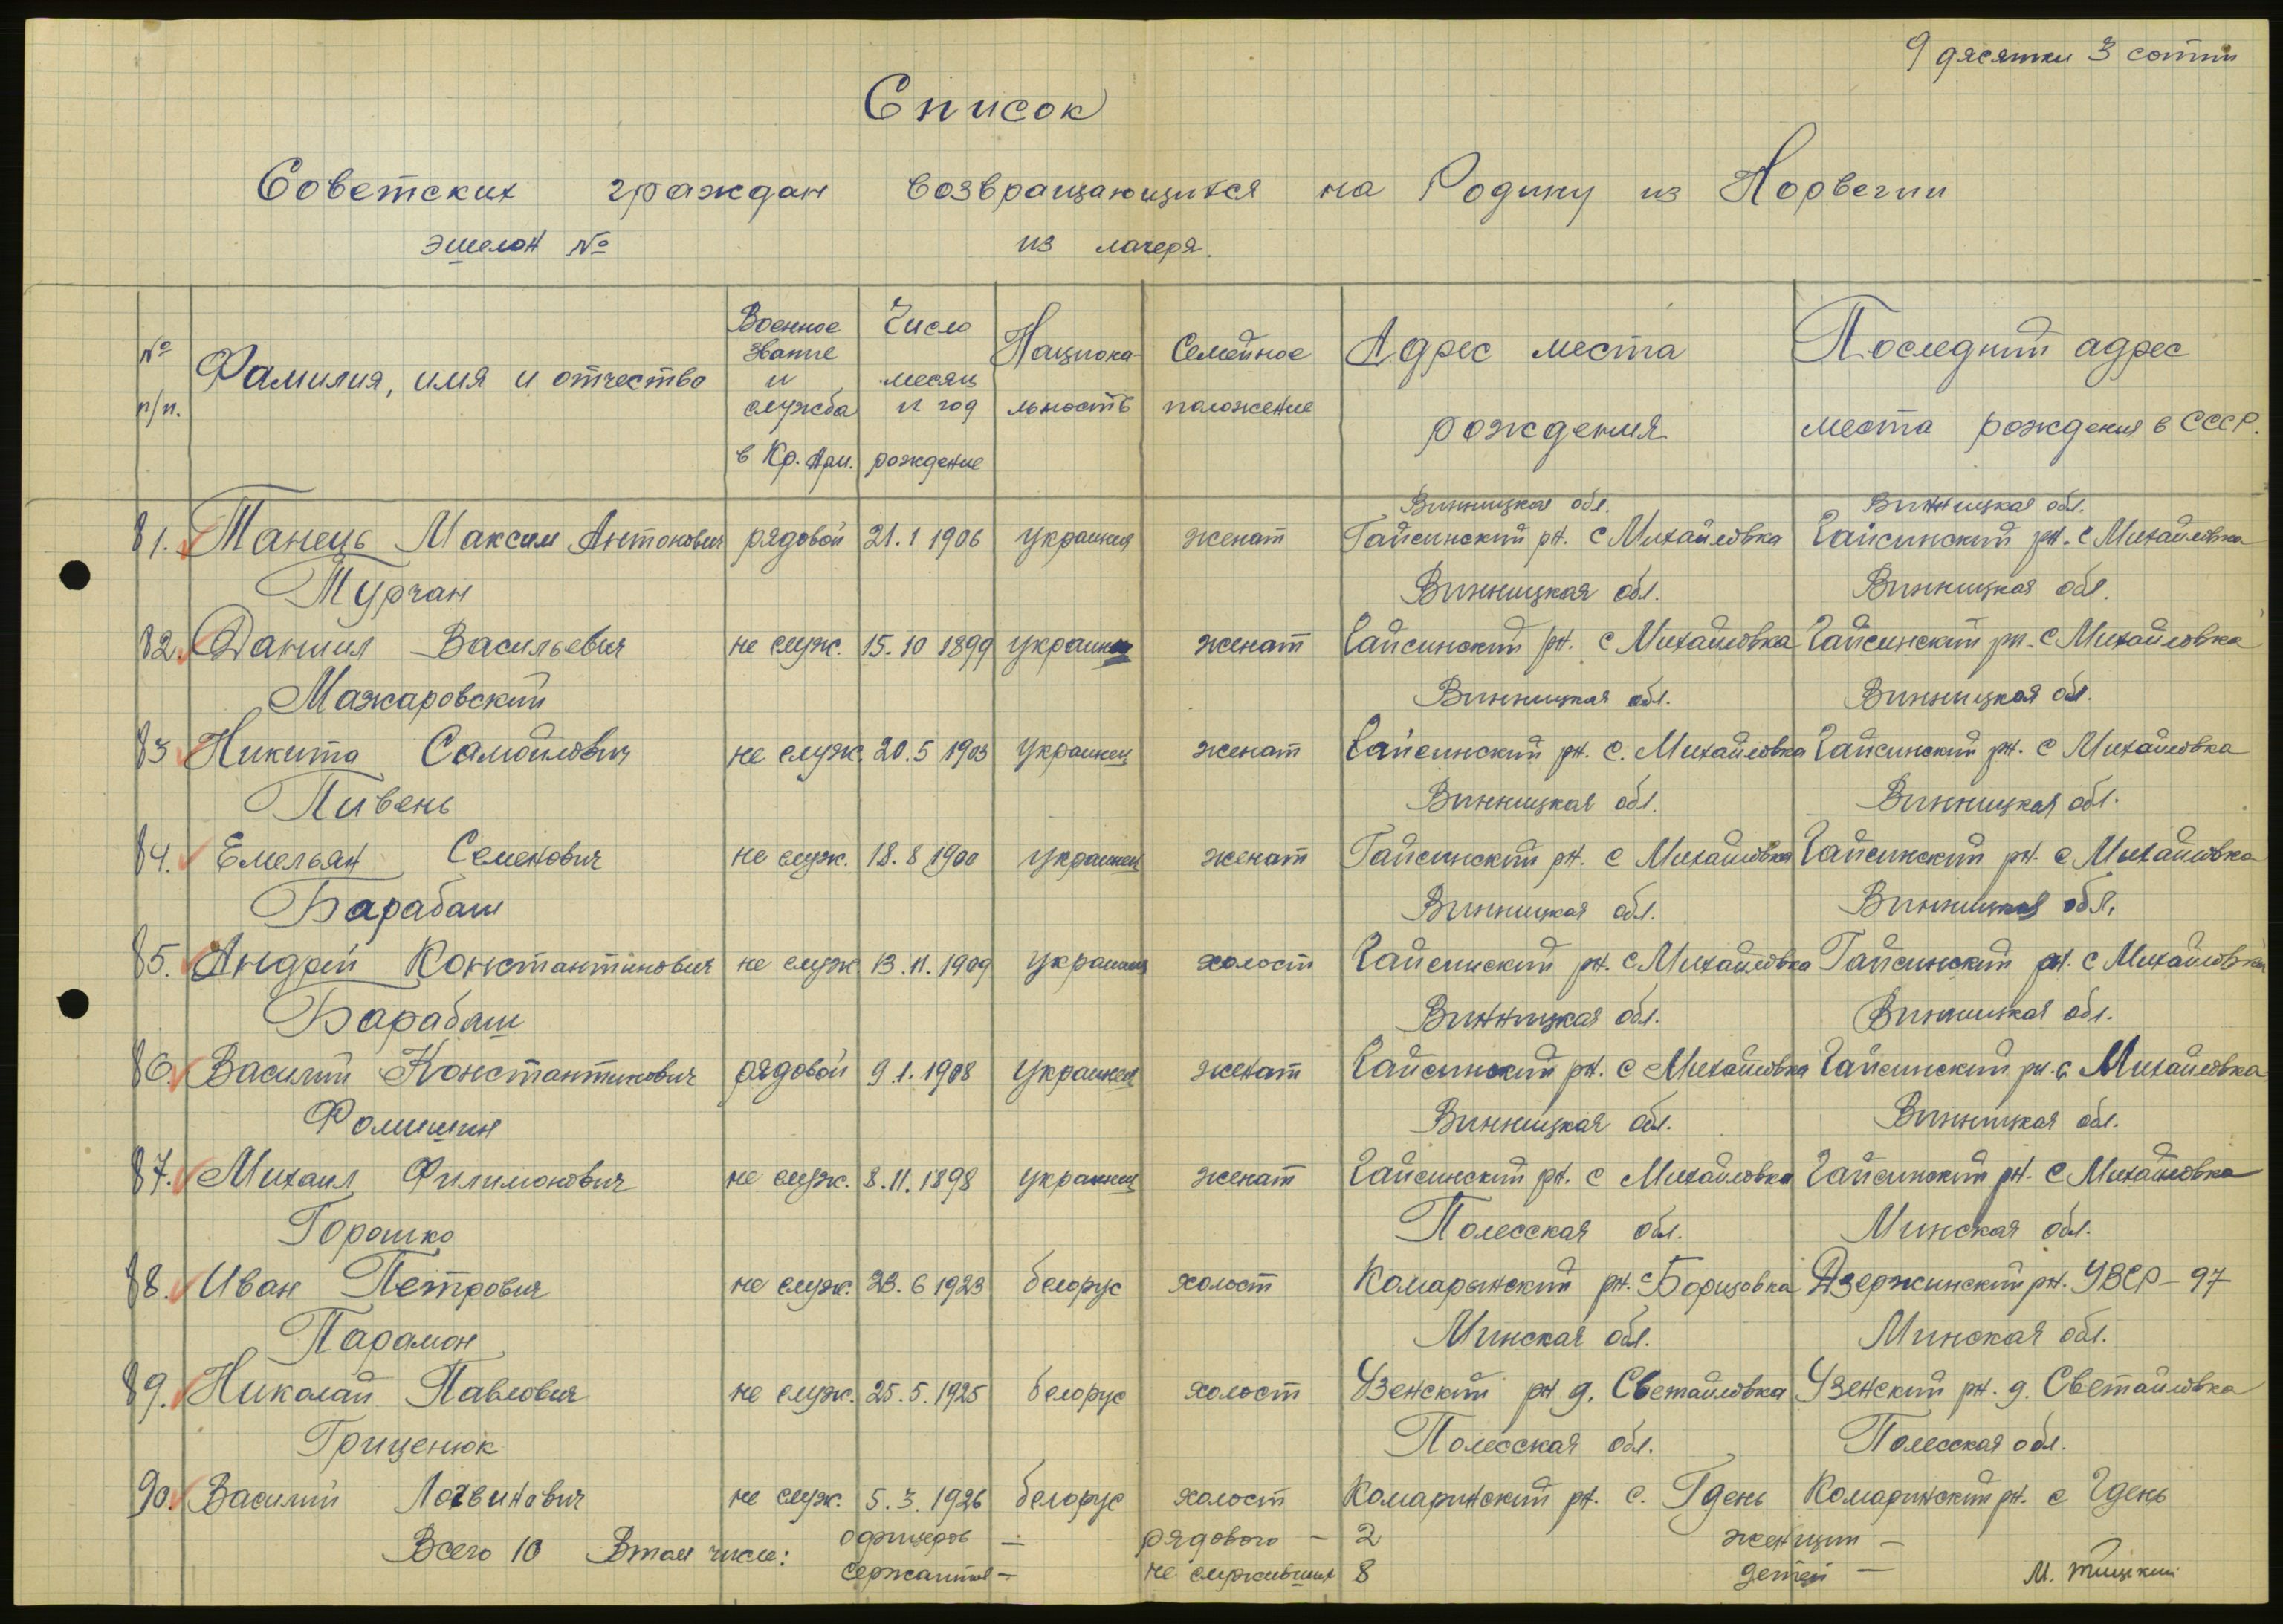 9 дясятки 3 сотни
Список
Советских граждан возвращающихся на Родину из Норвегии
эшелон № из лагеря.
№ п/п. Фамилия, имя и отчество Военное звание и служба в Кр. Арм. Число месяц и год рождение Национальность Семейное положение Адрес места рождения Последний адрес места рождения в СССР.
Винницкая обл. Винницкая обл.
81. Танець Максим Антонович рядовой 21.1 1906 украинец женат Гайсинский рн. с Михайловка Гайсинский рн. с Михайловка
Турчан Винницкая обл. Винницкая обл.
82. Даниил Васильевич не служ. 15.10 1899 украинец женат Гайсинский рн. с Михайловка Гайсинский рн. с Михайловка
Мажаровский Винницкая обл. Винницкая обл.
83 Никита Самойлович не служ. 20.5 1903 украинец женат Гайсинский рн. с. Михайловка Гайсинский рн. с Михайловка
Пивень Винницкая обл. Винницкая обл.
84. Емельян Семенович не служ. 18.8 1900 украинец женат Гайсинский рн. с Михайловка Гайсинский рн. с Михайловка
Барабаш Винницкая обл. Винницкая обл.
85. Андрей Константинович не служ 13.11.1909 украинец холост Гайсинский рн. с Михайловка Гайсинский рн. с Михайловка
Барабаш Винницкая обл. Винницкая обл.
86. Василий Константинович рядовой 9.1.1908 украинец женат Гайсинский рн. с Михайловка Гайсинский рн. с Михайловка
Фомишин Винницкая обл. Винницкая обл.
87. Михаил Филимонович не служ. 8.11.1898 украинец женат Гайсинский рн. с Михайловка Гайсинский рн. с Михайловка
Горошко Полесская обл. Минская обл.
88. Иван Петрович не служ. 23.6 1923 белорус холост Комарынский рн. с Борщовка Дзержинский рн. УВСР-97
Парамон Минская обл. Минская обл.
89. Николай Павлович не служ. 25.5.1925 белорус холост Узенский рн д. Светайловка Узенский рн. д. Светайловка
Гриценюк Полесская обл. Полесская обл.
90. Василий Логвинович не служ. 5.3.1926 белорус холост Комаринский рн. с. Гдень Комаринский рн. с Гдень
Всего 10 Втом числе: офицеров — рядового — 2 женщин —
сержантов — не служивших 8 детей — М.